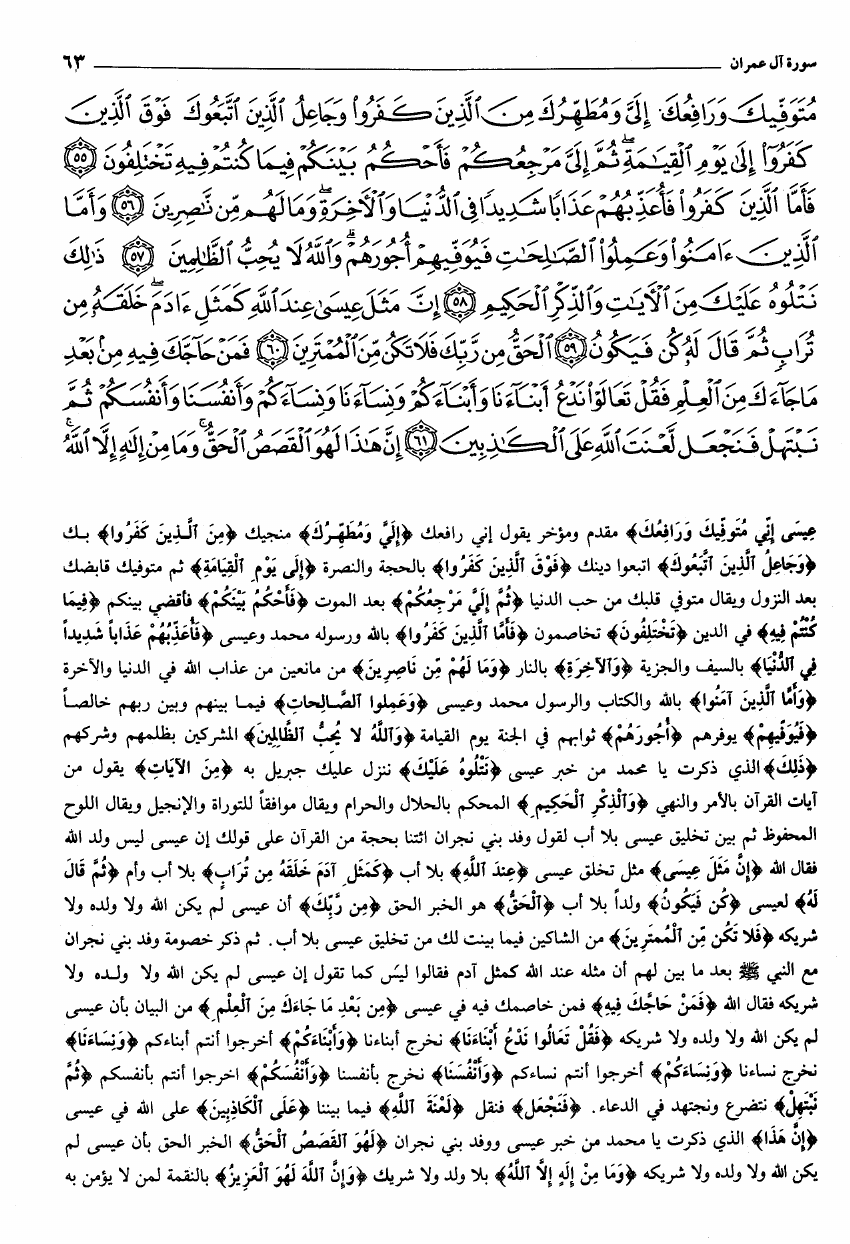 سورة آل عمران ٦٣
مُتَوَفِّيكَ وَرَافِعُكَ إِلَىَّ وَمُطَهِّرُكَ مِنَ ٱلَّذِينَ كَفَرُوا۟ وَجَاعِلُ ٱلَّذِينَ ٱتَّبَعُوكَ فَوْقَ ٱلَّذِينَ
كَفَرُوٓا۟ إِلَىٰ يَوْمِ ٱلْقِيَـٰمَةِ ۖ ثُمَّ إِلَىَّ مَرْجِعُكُمْ فَأَحْكُمُ بَيْنَكُمْ فِيمَا كُنتُمْ فِيهِ تَخْتَلِفُونَ ٥٥
فَأَمَّا ٱلَّذِينَ كَفَرُوا۟ فَأُعَذِّبُهُمْ عَذَابًا شَدِيدًا فِى ٱلدُّنْيَا وَٱلْـَٔاخِرَةِ ۖ وَمَا لَهُم مِّن نَّـٰصِرِينَ ٥٦ وَأَمَّا
ٱلَّذِينَ ءَامَنُوا۟ وَعَمِلُوا۟ ٱلصَّـٰلِحَـٰتِ فَيُوَفِّيهِمْ أُجُورَهُمْ ۗ وَٱللَّهُ لَا يُحِبُّ ٱلظَّـٰلِمِينَ ٥٧ ذَٰلِكَ
نَتْلُوهُ عَلَيْكَ مِنَ ٱلْـَٔايَـٰتِ وَٱلذِّكْرِ ٱلْحَكِيمِ ٥٨ إِنَّ مَثَلَ عِيسَىٰ عِندَ ٱللَّهِ كَمَثَلِ ءَادَمَ ۖ خَلَقَهُۥ مِن
تُرَابٍ ثُمَّ قَالَ لَهُۥ كُن فَيَكُونُ ٥٩ ٱلْحَقُّ مِن رَّبِّكَ فَلَا تَكُن مِّنَ ٱلْمُمْتَرِينَ ٦٠ فَمَنْ حَآجَّكَ فِيهِ مِنۢ بَعْدِ
مَا جَآءَكَ مِنَ ٱلْعِلْمِ فَقُلْ تَعَالَوْا۟ نَدْعُ أَبْنَآءَنَا وَأَبْنَآءَكُمْ وَنِسَآءَنَا وَنِسَآءَكُمْ وَأَنفُسَنَا وَأَنفُسَكُمْ ثُمَّ
نَبْتَهِلْ فَنَجْعَل لَّعْنَتَ ٱللَّهِ عَلَى ٱلْكَـٰذِبِينَ ٦١ إِنَّ هَـٰذَا لَهُوَ ٱلْقَصَصُ ٱلْحَقُّ ۚ وَمَا مِنْ إِلَـٰهٍ إِلَّا ٱللَّهُ ۚ
عِيسَى إِنِّي مُتَوَفِّيكَ وَرَافِعُكَ﴾ مقدم ومؤخر يقول إني رافعك ﴿إِلَيَّ وَمُطَهِّرُكَ﴾ منجيك ﴿مِنَ ٱلَّذِينَ كَفَرُوا﴾ بك
﴿وَجَاعِلُ ٱلَّذِينَ ٱتَّبَعُوكَ﴾ اتبعوا دينك ﴿فَوْقَ ٱلَّذِينَ كَفَرُوا﴾ بالحجة والنصرة ﴿إِلَى يَوْمِ ٱلْقِيَامَةِ﴾ ثم متوفيك قابضك
بعد النزول ويقال متوفي قلبك من حب الدنيا ﴿ثُمَّ إِلَيَّ مَرْجِعُكُمْ﴾ بعد الموت ﴿فَأَحْكُمُ بَيْنَكُمْ﴾ فأقضي بينكم ﴿فِيمَا
كُنْتُمْ فِيهِ﴾ في الدين ﴿تَخْتَلِفُونَ﴾ تخاصمون ﴿فَأَمَّا ٱلَّذِينَ كَفَرُوا﴾ بالله ورسوله محمد وعيسى ﴿فَأُعَذِّبُهُمْ عَذَاباً شَدِيداً
فِي ٱلدُّنْيَا﴾ بالسيف والجزية ﴿وَٱلآخِرَةِ﴾ بالنار ﴿وَمَا لَهُمْ مِّن نَاصِرِينَ﴾ من مانعين من عذاب الله في الدنيا والآخرة
﴿وَأَمَّا ٱلَّذِينَ آمَنُوا﴾ بالله والكتاب والرسول محمد وعيسى ﴿وَعَمِلُوا ٱلصَّالِحَاتِ﴾ فيما بينهم وبين ربهم خالصاً
﴿فَيُوَفِّيهِمْ﴾ يوفرهم ﴿أُجُورَهُمْ﴾ ثوابهم في الجنة يوم القيامة ﴿وَٱللَّهُ لا يُحِبُّ ٱلظَّالِمِينَ﴾ المشركين بظلمهم وشركهم
﴿ذَلِكَ﴾ الذي ذكرت يا محمد من خبر عيسى ﴿نَتْلُوهُ عَلَيْكَ﴾ ننزل عليك جبريل به ﴿مِنَ الآيَاتِ﴾ يقول من
آيات القرآن بالأمر والنهي ﴿وَٱلذِّكْرِ ٱلْحَكِيمِ﴾ المحكم بالحلال والحرام ويقال موافقاً للتوراة والإنجيل ويقال اللوح
المحفوظ ثم بين تخليق عيسى بلا أب لقول وفد بني نجران ائتنا بحجة من القرآن على قولك إن عيسى ليس ولد الله
فقال الله ﴿إِنَّ مَثَلَ عِيسَى﴾ مثل تخلق عيسى ﴿عِنْدَ ٱللَّهِ﴾ بلا أب ﴿كَمَثَلِ آدَمَ خَلَقَهُ مِن تُرَابٍ﴾ بلا أب وأم ﴿ثُمَّ قَالَ
لَهُ﴾ لعيسى ﴿كُن فَيَكُونُ﴾ ولداً بلا أب ﴿ٱلْحَقُّ﴾ هو الخبر الحق ﴿مِن رَّبِّكَ﴾ أن عيسى لم يكن الله ولا ولده ولا
شريكه ﴿فَلا تَكُن مِّن ٱلْمُمتَرِينَ﴾ من الشاكين فيما بينت لك من تخليق عيسى بلا أب. ثم ذكر خصومة وفد بني نجران
مع النبي ﷺ بعد ما بين لهم أن مثله عند الله كمثل آدم فقالوا ليس كما تقول إن عيسى لم يكن الله ولا ولده ولا
شريكه فقال الله ﴿فَمَنْ حَاجَّكَ فِيهِ﴾ فمن خاصمك فيه في عيسى ﴿مِن بَعْدِ مَا جَاءَكَ مِنَ ٱلْعِلْمِ﴾ من البيان بأن عيسى
لم يكن الله ولا ولده ولا شريكه ﴿فَقُلْ تَعَالُوا نَدْعُ أَبْنَاءَنَا﴾ نخرج أبناءنا ﴿وَأَبْنَاءَكُمْ﴾ أخرجوا أنتم أبناءكم ﴿وَنِسَاءَنَا﴾
نخرج نساءنا ﴿وَنِسَاءَكُمْ﴾ أخرجوا أنتم نساءكم ﴿وَأَنْفُسَنَا﴾ نخرج بأنفسنا ﴿وَأَنْفُسَكُمْ﴾ اخرجوا أنتم بأنفسكم ﴿ثُمَّ
نَبْتَهِلْ﴾ نتضرع ونجتهد في الدعاء. ﴿فَنَجْعَل﴾ فنقل ﴿لَعْنَةَ ٱللَّهِ﴾ فيما بيننا ﴿عَلَى ٱلْكَاذِبِينَ﴾ على الله في عيسى
﴿إِنَّ هَذَا﴾ الذي ذكرت يا محمد من خبر عيسى ووفد بني نجران ﴿لَهُوَ ٱلقَصَصُ ٱلْحَقُّ﴾ الخبر الحق بأن عيسى لم
يكن الله ولا ولده ولا شريكه ﴿وَمَا مِنْ إِلَهٍ إِلاَّ ٱللَّهُ﴾ بلا ولد ولا شريك ﴿وَإِنَّ ٱللَّهَ لَهُوَ ٱلْعَزِيزُ﴾ بالنقمة لمن لا يؤمن به